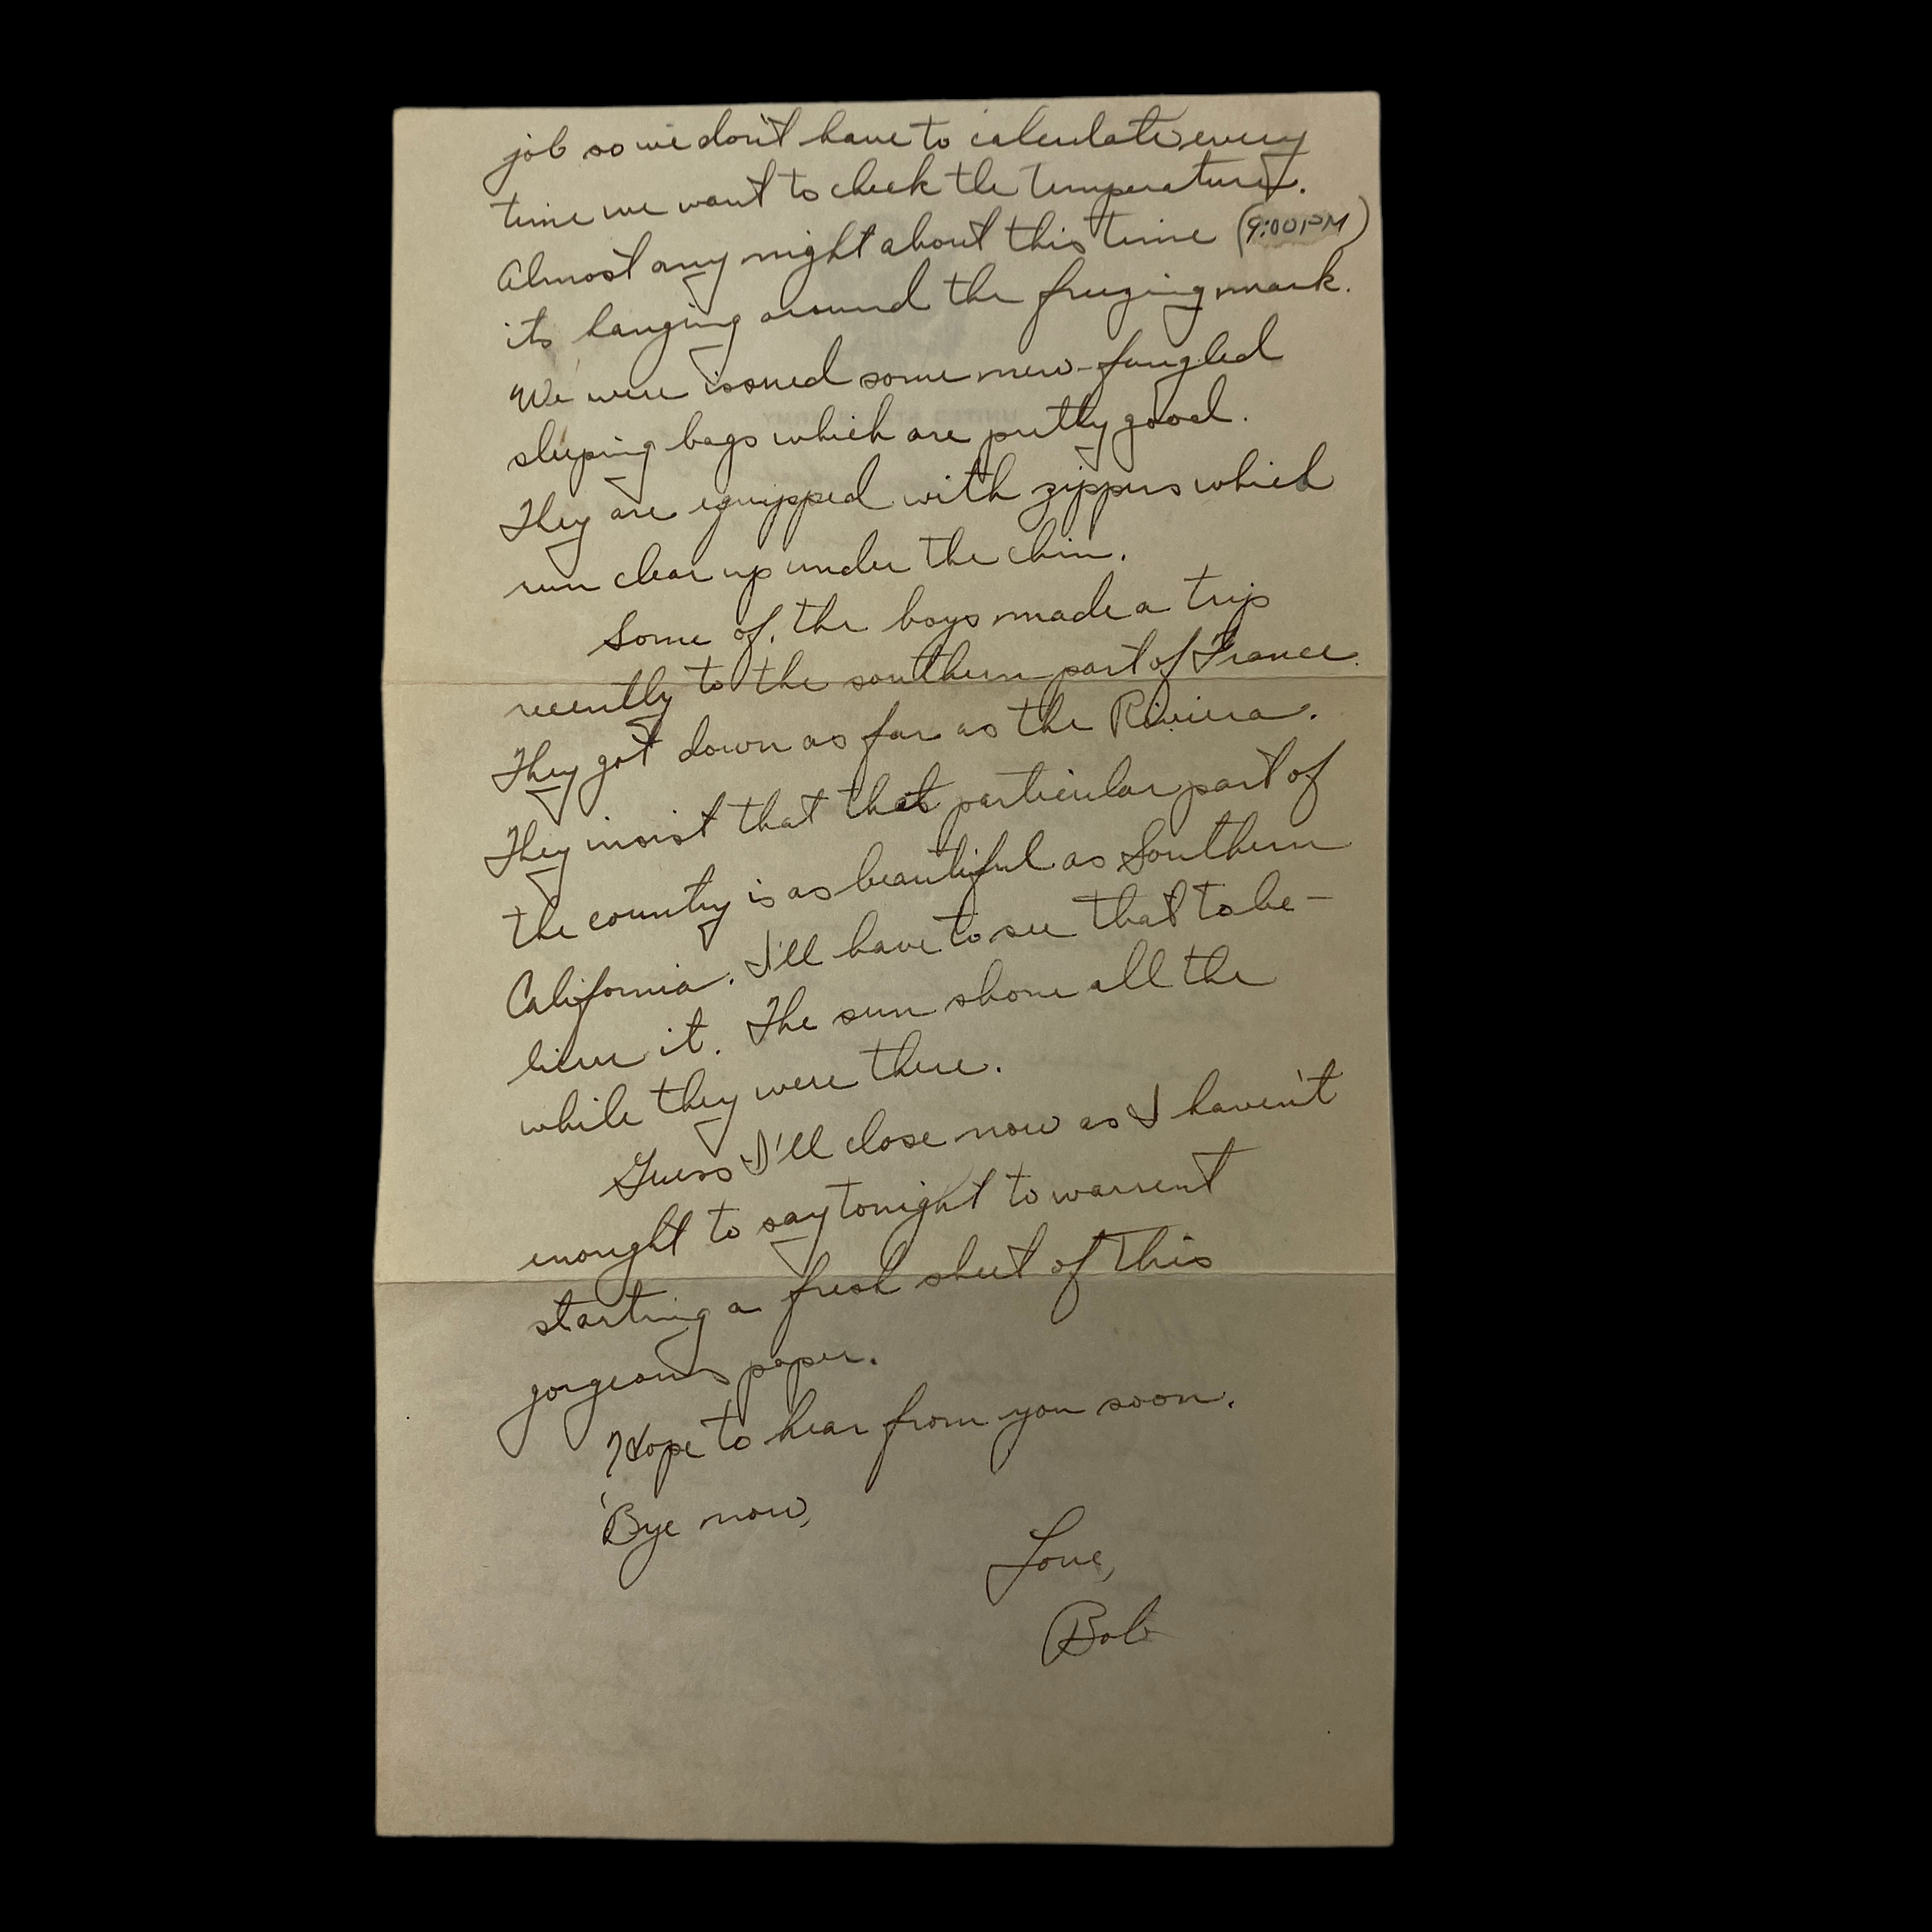 job so we don't have to calculate every
time we want to check the temperature.
Almost any night about this time (9:00 PM)
its hanging around the freezing mark.
We were issued some new-fangled
sleeping bags which are pretty good.
They are equipped with zippers which
run clear up under the chin.
Some of the boys made a trip
recently to the southern part of France.
They got down as far as the Riviera.
They insist that that particular part of
the country is as beautiful as Southern
California. I'll have to see that to be-
lieve it. The sun shone all the
while they were there.
Guess I'll close now as I haven't
enought to say tonight to warrent
starting a fresh sheet of this
gorgeous paper.
Hope to hear from you soon.
'Bye now,
Love,
Bob